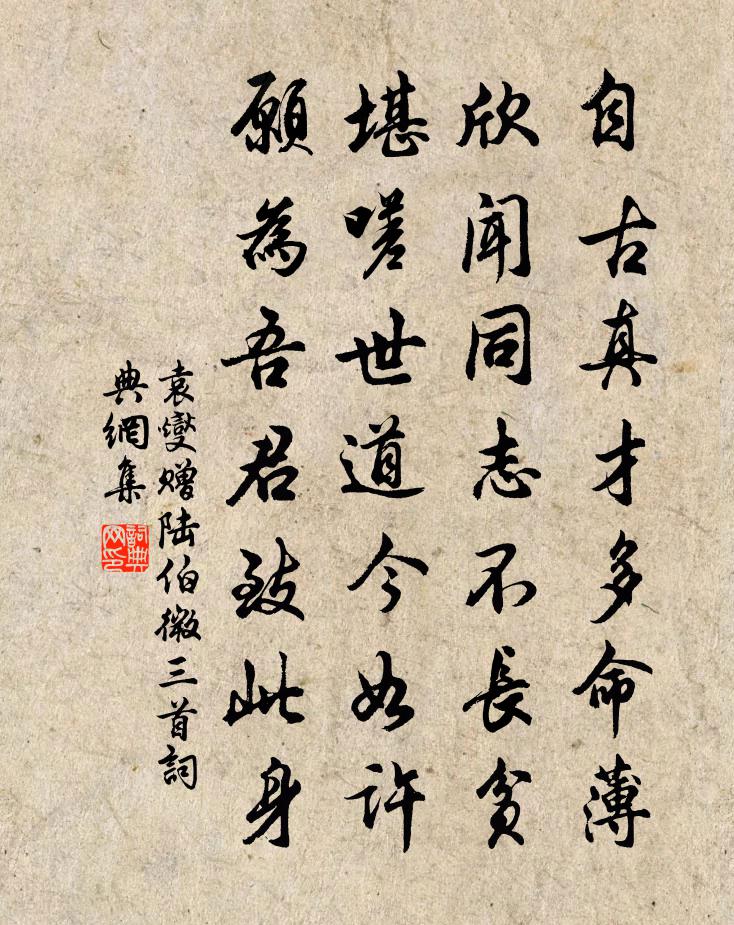 自古真才多命薄
欣聞同志不長貧
堪嗟世道今如許
願為吾君致此身
袁燮赠陆伯微三首詞
典網集
詞典網印